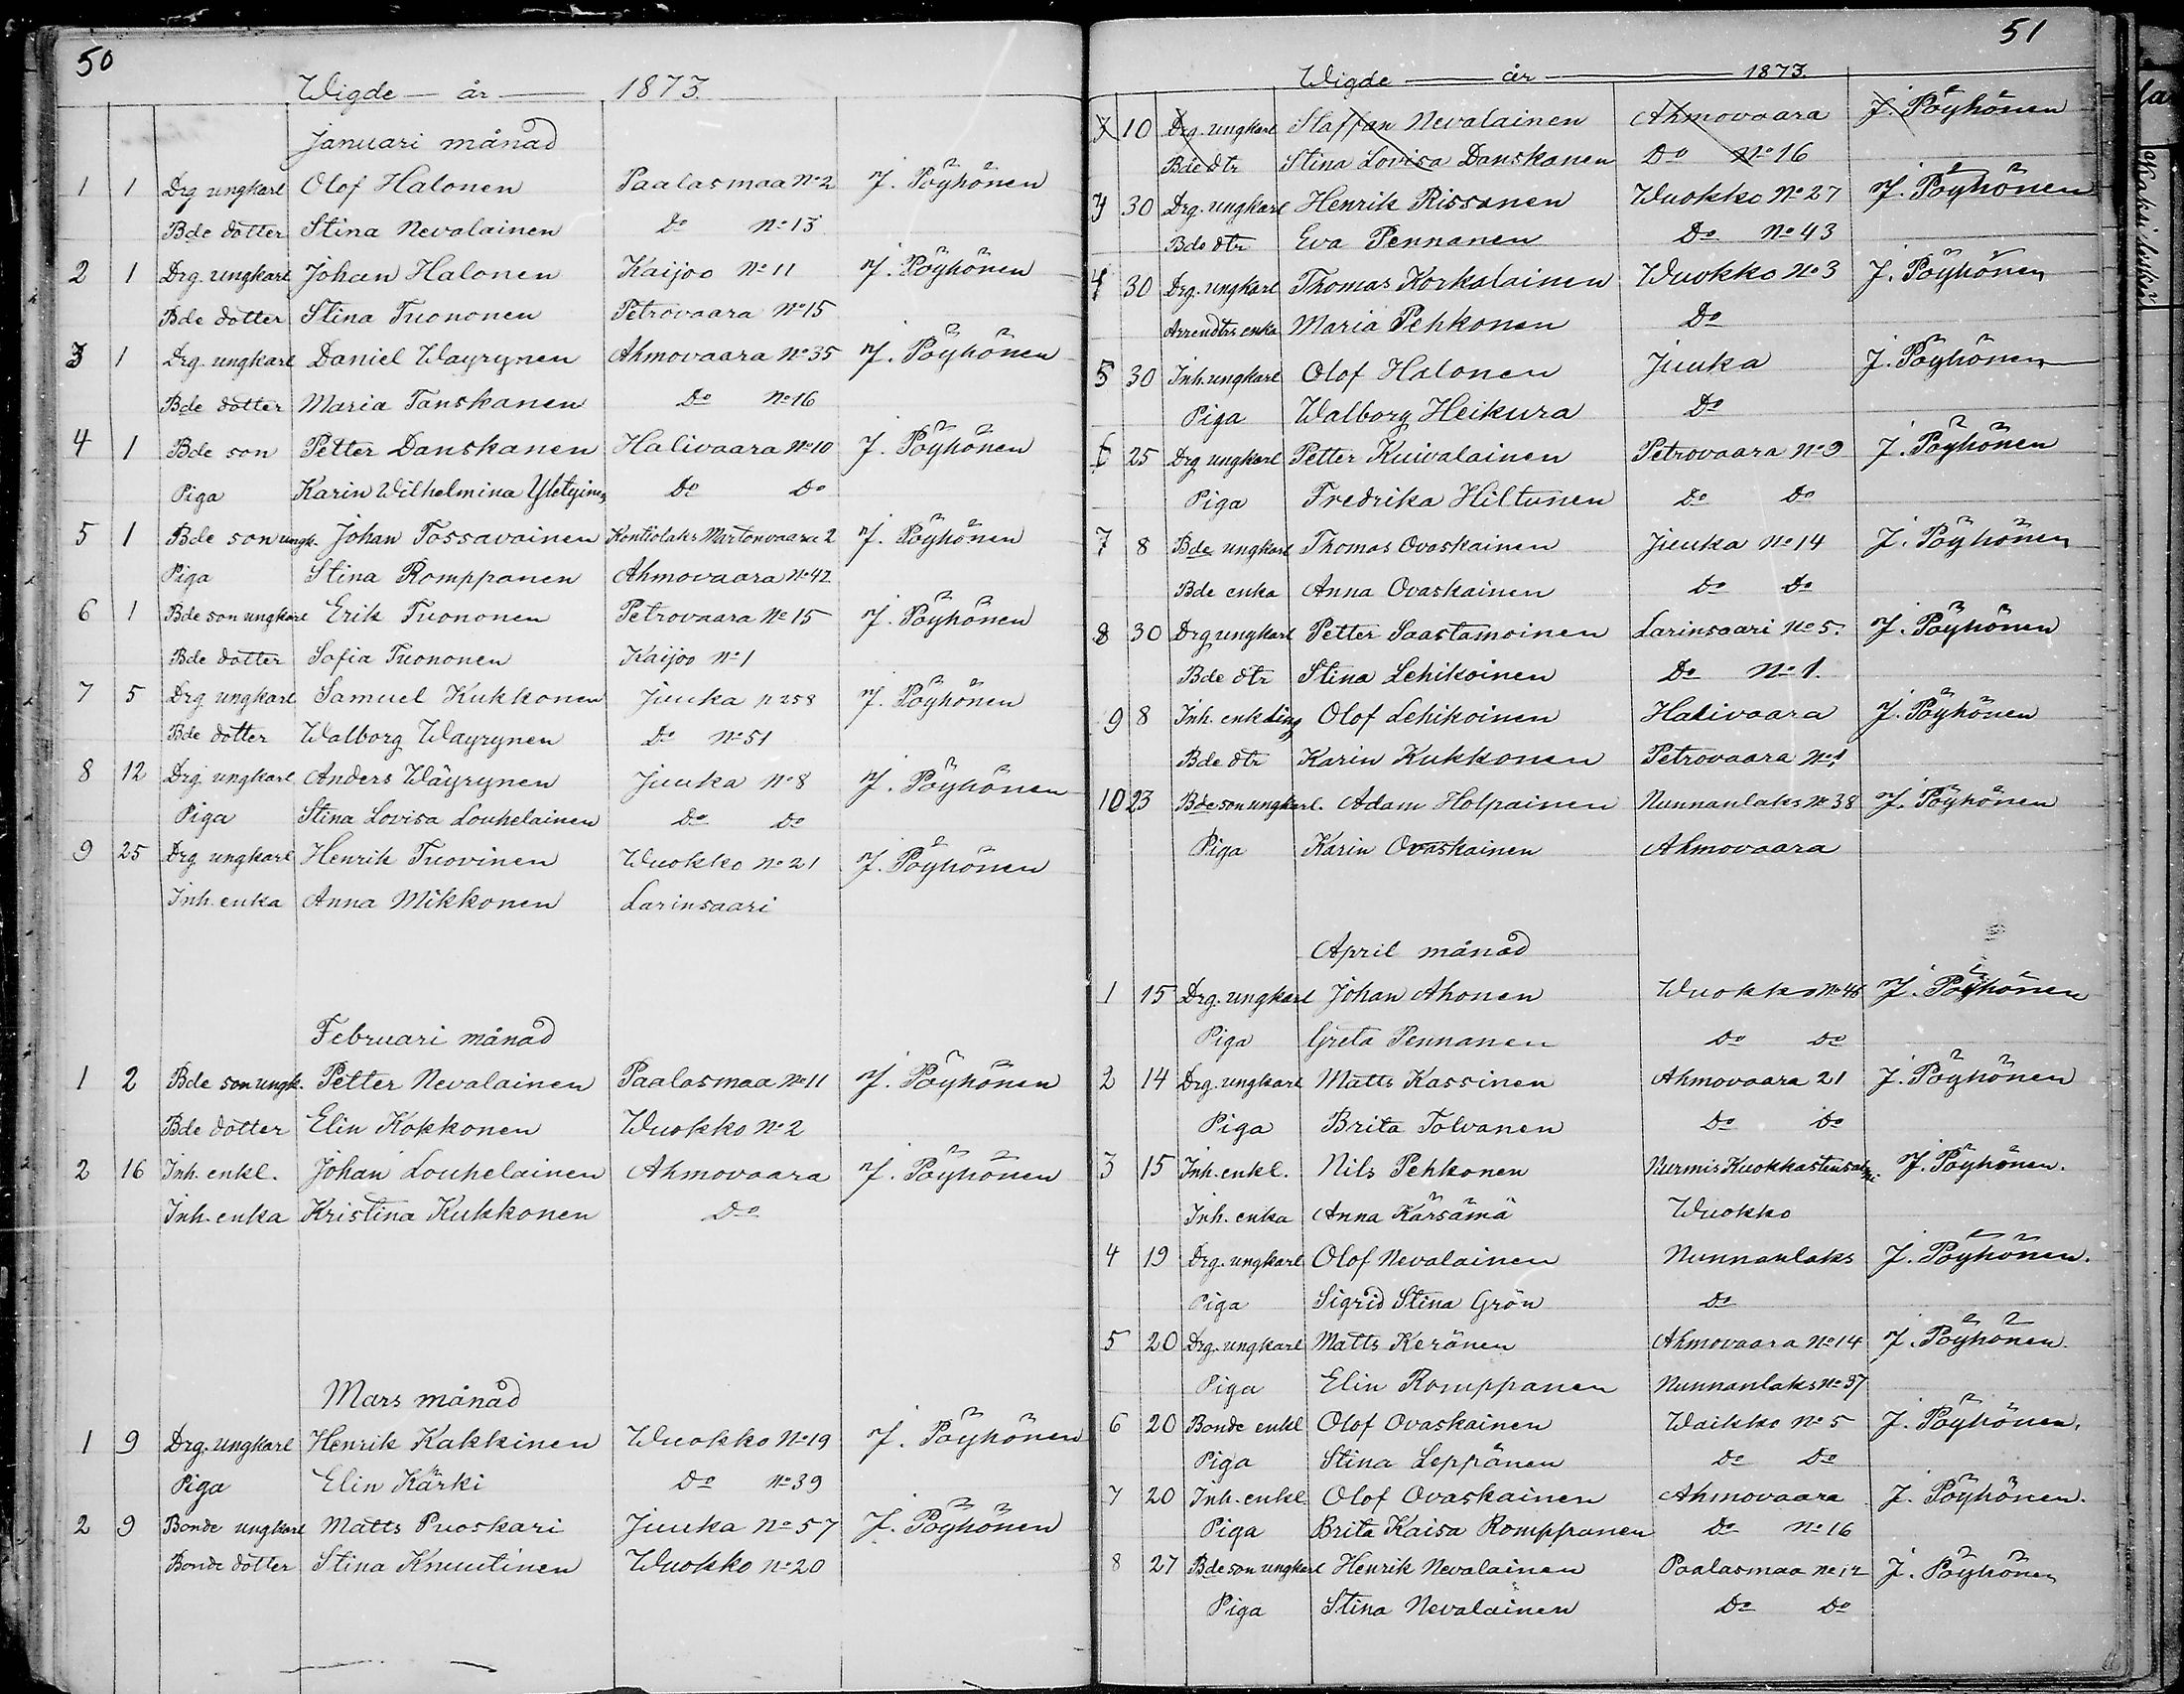 50
Wigde — år — 1873.
Januari månad
1 1 Drg ungkarl Olof Halonen Paalasmaa No 2 J. Pöyhönen
Bde dotter Stina Nevalainen Do No 13
2 1 Drg. ungkarl Johan Halonen Kaijoo No 11 J. Pöyhönen
Bde dotter Stina Tuononen Petrovaara No 15
3 1 Drg. ungkarl Daniel Wäyrynen Ahmovaara No 35 J. Pöyhönen
Bde dotter Maria Tanskanen Do No 16
4 1 Bde son Petter Danskanen Halivaara No 10 J. Pöyhönen
Piga Karin Wilhelmina Do Do
5 1 Bde son ungk. Johan Tossavainen Kontiolaks Martonvaara 2 J. Pöyhönen
Piga Stina Romppanen Ahmovaara No 42
6 1 Bde son ungkarl Erik Tuononen Petrovaara No 15 J. Pöyhönen
Bde dotter Sofia Tuononen Kaijoo No 1
7 5 Drg ungkarl Samuel Kukkonen Juuka p 258 J. Pöyhönen
Bde dotter Walborg Wäyrynen Do No 51
8 12 Drg. ungkarl Anders Wäyrynen Juuka No 8 J. Pöyhönen
Piga Stina Lovisa Louhelainen Do Do
9 25 Drg ungkarl Henrik Tuovinen Wuokko No 21 J. Pöyhönen
Inh. enka Anna Mikkonen Larinsaari
Februari månad
1 2 Bde son ungk. Petter Nevalainen Paalasmaa No 11 J. Pöyhönen
Bde dotter Elin Kokkonen Wuokko No 2
2 16 Inh. enkl. Johan Louhelainen Ahmovaara J. Pöyhönen
Inh. enka Kristina Kukkonen Do
Mars månad
1 9 Drg. ungkarl Henrik Kakkinen Wuokko No 19 J. Pöyhönen
Piga Elin Kärki Do No 39
2 9 Bonde ungkarl Matts Puoskari Juuka No 57 J. Pöyhönen
Bonde dotter Stina Knuutinen Wuokko No 20
51
Wigde — år — 1873.
10 Drg. ungkarl Staffan Nevalainen Ahmovaara J. Pöyhönen
Bde dtr Stina Lovisa Danskanen Do No 16
3 30 Drg. ungkarl Henrik Rissanen Wuokko No 27 J. Pöyhönen
Bde dtr Eva Pennanen Do No 43
4 30 Drg. ungkarl Thomas Korkalainen Wuokko No 3 J. Pöyhönen
Arrendtrs enka Maria Pehkonen Do
5 30 Inh. ungkarl Olof Halonen Juuka J. Pöyhönen
Piga Walborg Heikura Do
6 25 Drg ungkarl Petter Kuivalainen Petrovaara No 9 J. Pöyhönen
Piga Fredrika Hiltunen Do Do
7 8 Bde ungkarl Thomas Ovaskainen Juuka No 14 J. Pöyhönen
Bde enka Anna Ovaskainen Do Do
8 30 Drg ungkarl Petter Saastamoinen Larinsaari No 5. J. Pöyhönen
Bde dtr Stina Lehikoinen Do No 1.
9 8 Inh. enkling Olof Lehikoinen Halivaara J. Pöyhönen
Bde dtr Karin Kukkonen Petrovaara No 1
10 23 Bde son ungkarl. Adam Holpainen Nunnanlaks No 38 J. Pöyhönen
Piga Karin Ovaskainen Ahmovaara
April månad
1 15 Drg. ungkarl Johan Ahonen Wuokko No 48 J. Pöyhönen
Piga Greta Pennanen Do Do
2 14 Drg. ungkarl Matts Kassinen Ahmovaara 21 J. Pöyhönen
Piga Brita Tolvanen Do Do
3 15 Inh. enkl. Nils Pehkonen Nurmis Kuokkastensalmi J. Pöyhönen.
Inh. enka Anna Kärsämä Wuokko
4 19 Drg. ungkarl Olof Nevalainen Nunnanlaks J. Pöyhönen.
Piga Sigrid Stina Grön Do
5 20 Drg. ungkarl Matts Keränen Ahmovaara No 14 J. Pöyhönen.
Piga Elin Romppanen Nunnanlaks No 37
6 20 Bonde enkl Olof Ovaskainen Waikko No 5 J. Pöyhönen.
Piga Stina Leppänen Do Do
7 20 Inh. enkl. Olof Ovaskainen Ahmovaara J. Pöyhönen.
Piga Brita Kaisa Romppanen Do No 16
8 27 Bde son ungkarl Henrik Nevalainen Paalasmaa No 12 J. Pöyhönen
Piga Stina Nevalainen Do Do